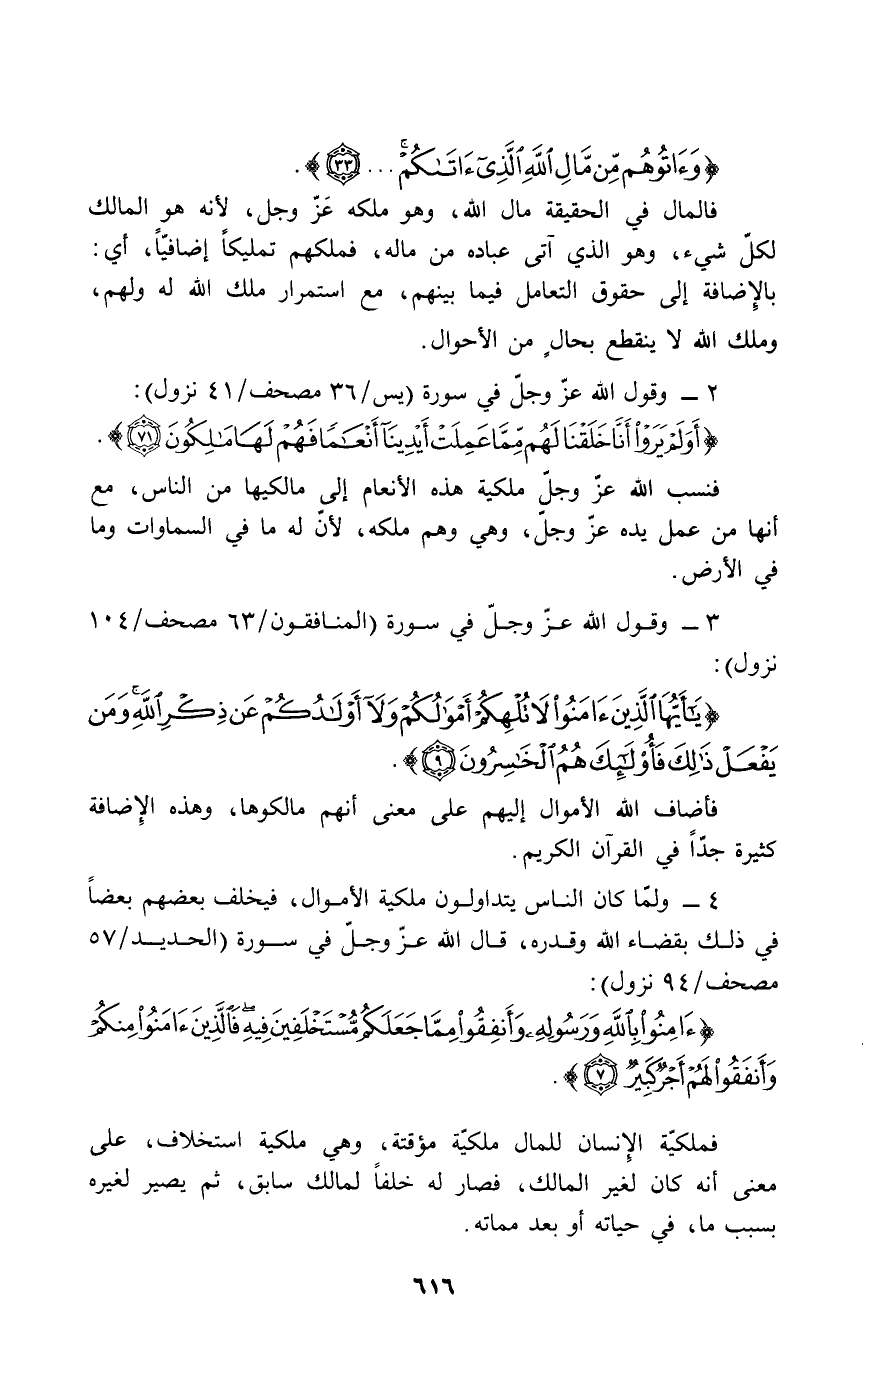 ﴿وَءَاتُوهُم مِّن مَّالِ ٱللَّهِ ٱلَّذِىٓ ءَاتَىٰكُمْ ۚ ... ٣٣﴾.
فالمال في الحقيقة مال الله، وهو ملكه عَزّ وجل، لأنه هو المالك
لكلّ شيء، وهو الذي آتى عباده من ماله، فملكهم تمليكاً إضافيّاً، أي:
بالإضافة إلى حقوق التعامل فيما بينهم، مع استمرار ملك الله له ولهم،
وملك الله لا ينقطع بحالٍ من الأحوال.
٢ ـ وقول الله عزّ وجلّ في سورة (يس/٣٦ مصحف/٤١ نزول):
﴿أَوَلَمْ يَرَوْا۟ أَنَّا خَلَقْنَا لَهُم مِّمَّا عَمِلَتْ أَيْدِينَآ أَنْعَٰمًا فَهُمْ لَهَا مَٰلِكُونَ ٧١﴾.
فنسب الله عزّ وجلّ ملكية هذه الأنعام إلى مالكيها من الناس، مع
أنها من عمل يده عزّ وجلّ، وهي وهم ملكه، لأنّ له ما في السماوات وما
في الأرض.
٣ ـ وقول الله عزّ وجلّ في سورة (المنافقون/٦٣ مصحف/١٠٤
نزول):
﴿يَٰٓأَيُّهَا ٱلَّذِينَ ءَامَنُوا۟ لَا تُلْهِكُمْ أَمْوَٰلُكُمْ وَلَآ أَوْلَٰدُكُمْ عَن ذِكْرِ ٱللَّهِ ۚ وَمَن
يَفْعَلْ ذَٰلِكَ فَأُو۟لَٰٓئِكَ هُمُ ٱلْخَٰسِرُونَ ٩﴾.
فأضاف الله الأموال إليهم على معنى أنهم مالكوها، وهذه الإضافة
كثيرة جدّاً في القرآن الكريم.
٤ ـ ولمّا كان الناس يتداولون ملكية الأموال، فيخلف بعضهم بعضاً
في ذلك بقضاء الله وقدره، قال الله عزّ وجلّ في سورة (الحديد/٥٧
مصحف/٩٤ نزول):
﴿ءَامِنُوا۟ بِٱللَّهِ وَرَسُولِهِۦ وَأَنفِقُوا۟ مِمَّا جَعَلَكُم مُّسْتَخْلَفِينَ فِيهِ ۖ فَٱلَّذِينَ ءَامَنُوا۟ مِنكُمْ
وَأَنفَقُوا۟ لَهُمْ أَجْرٌ كَبِيرٌ ٧﴾.
فملكيّة الإنسان للمال ملكيّة مؤقتة، وهي ملكية استخلاف، على
معنى أنه كان لغير المالك، فصار له خلفاً لمالك سابق، ثم يصير لغيره
بسبب ما، في حياته أو بعد مماته.
٦١٦